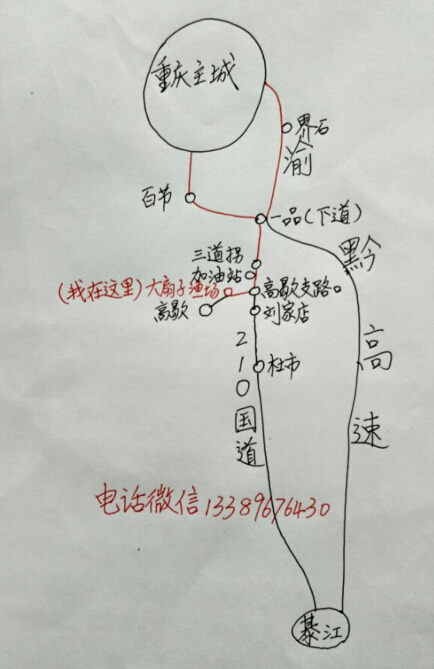 重庆主城
界石
渝
百节
一品(下道)
黔
三道拐
加油站
(我在这里)大扇子渔场
高歇支路
高歇
刘家店
210国道
杜市
高
速
电话微信13389676430
綦江